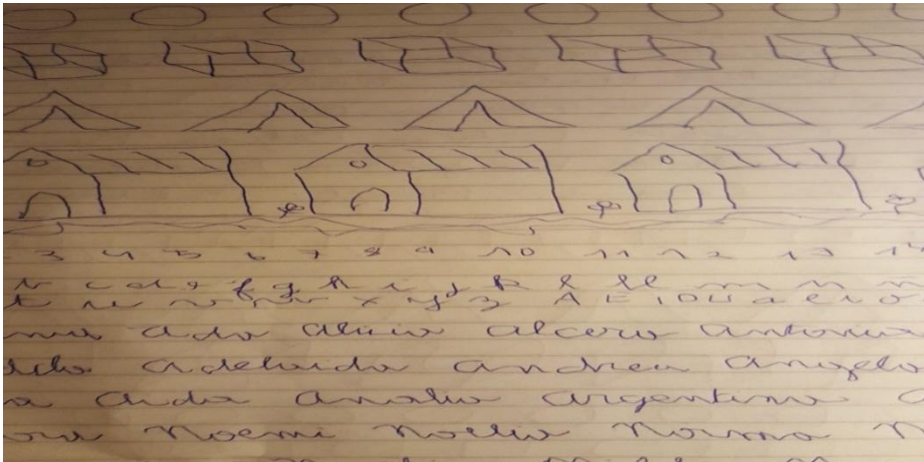 3 4 5 6 7 8 9 10 11 12 13
c d f g h i j k l ll m n ñ
t u v w x y z A E I O U a e i o
Ada Alicia Alcira Antonia
Adelaida Andrea Angela
Aida Analia Argentina
Noemi Noelia Norma